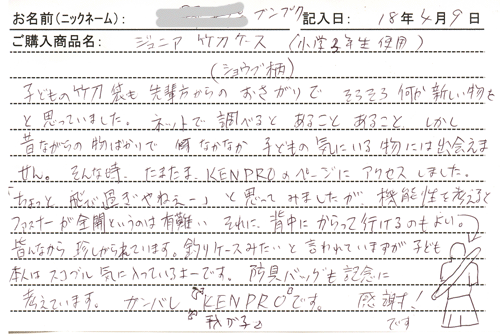 お名前(ニックネーム): ブンブク 記入日: 18年4月9日
ご購入商品名: ジュニア 竹刀ケース (小学2年生使用)
(ショウブ柄)
子どもの竹刀袋も先輩方からのおさがりで そろそろ何か新しい物を
と思っていました。ネットで調べると あること あること、しかし
昔ながらの物ばかりで 何かなかなか 子どもの気にいる物には出会えま
せん。そんな時、たまたま、KENPROのページに アクセスしました。
「ちょっと 飛び過ぎやねえー」と思ってみましたが、機能性を考えると
ファスナーが全開というのは有難い それに、背中にからって行けるのもよい。
皆んなから 珍しがられています。釣りケースみたいと言われていますが 子ども
本人はスコブル気に入っているよーです。防具バッグも記念に
考えています。ガンバレ "KENPRO"です。 感謝!
我が子 です